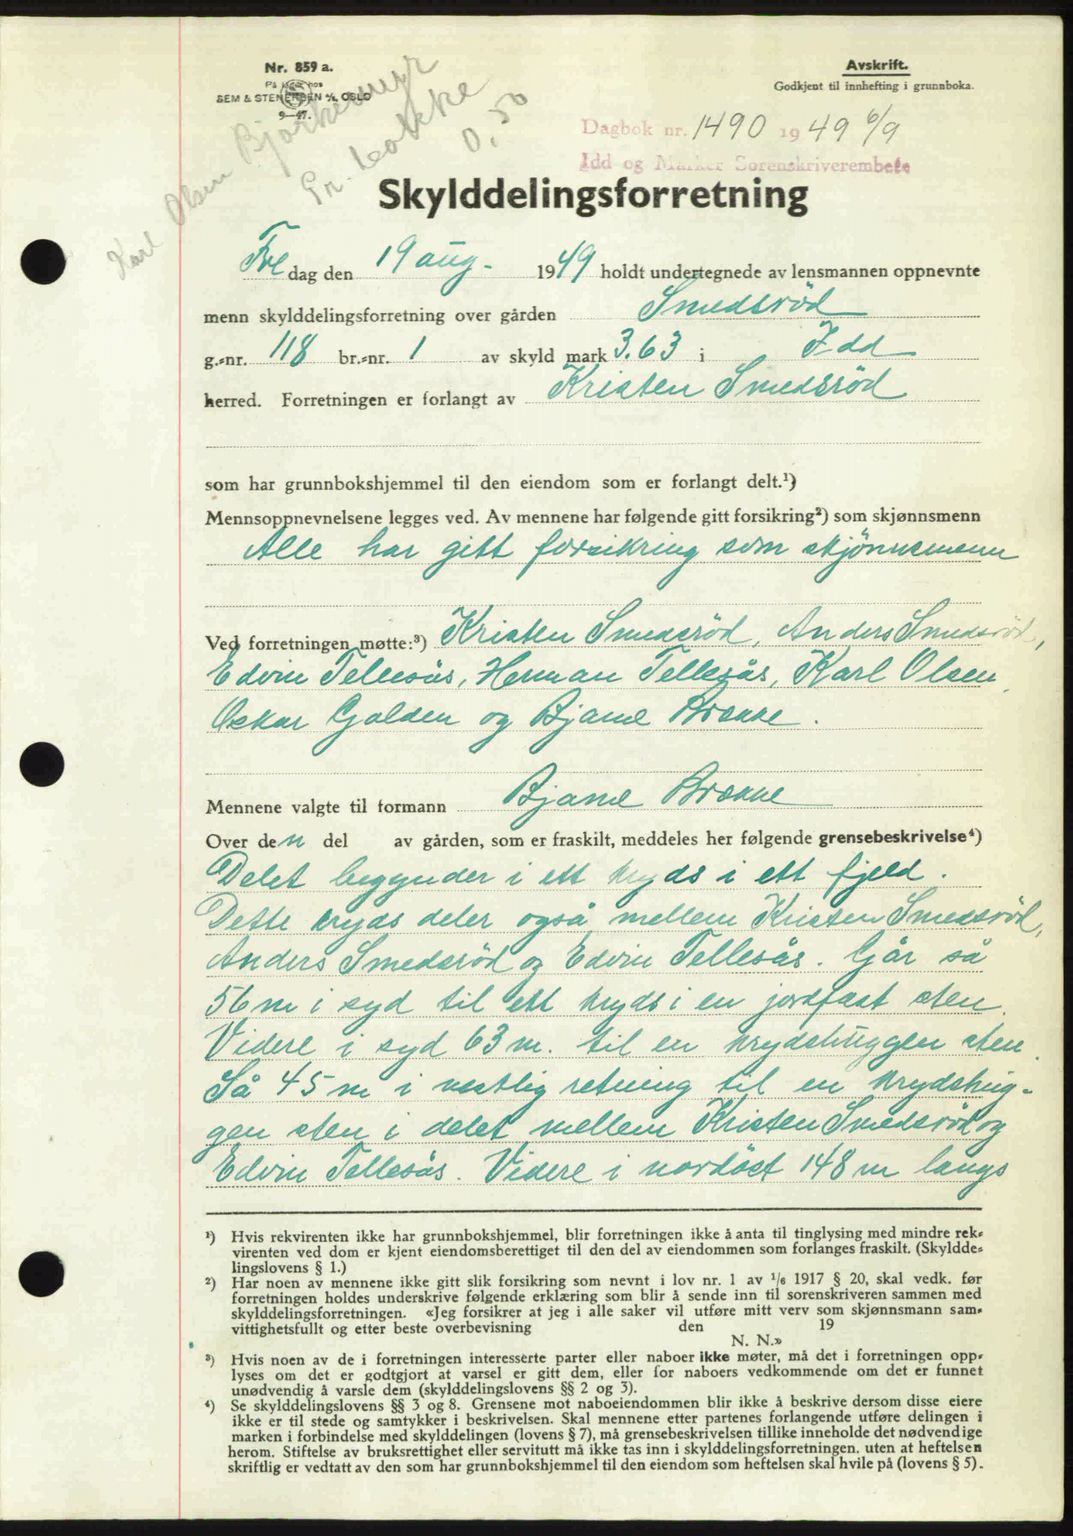 Nr. 859 a.
På lager hos
SEM & STENERSEN A/S, OSLO
9—47.
Avskrift.
Godkjent til innhefting i grunnboka.
Karl Olsen Bjørkemyr
0,50
Dagbok nr. 1490 1949 6/9
Idd og Marker Sorenskriverembete
Skylddelingsforretning
Fre dag den 19 aug. 1949 holdt undertegnede av lensmannen oppnevnte
menn skylddelingsforretning over gården Smedsröd
g.-nr. 118 br.-nr. 1 av skyld mark 3.63 i Idd
herred. Forretningen er forlangt av Kristen Smedsröd
som har grunnbokshjemmel til den eiendom som er forlangt delt.¹)
Mennsoppnevnelsene legges ved. Av mennene har følgende gitt forsikring²) som skjønnsmenn
Alle har gitt forsikring som skjönnsmenn
Ved forretningen møtte:³) Kristen Smedsröd, Anders Smedsröd,
Edvin Tellesås, Herman Tellesås, Karl Olsen,
Oskar Gjølden og Bjarne Brække.
Mennene valgte til formann Bjarne Brække
Over den del av gården, som er fraskilt, meddeles her følgende grensebeskrivelse⁴)
Delet begynder i ett kryds i ett fjeld.
Dette kryds deler også mellem Kristen Smedsröd,
Anders Smedsröd og Edvin Tellesås. Går så
56 m i syd til ett kryds i en jordfast sten.
Videre i syd 63 m. til en krydshuggen sten.
Så 45 m i vestlig retning til en krydshug-
gen sten i delet mellem Kristen Smedsröd og
Edvin Tellesås. Videre i nordöst 148 m langs
¹) Hvis rekvirenten ikke har grunnbokshjemmel, blir forretningen ikke å anta til tinglysing med mindre rek-
virenten ved dom er kjent eiendomsberettiget til den del av eiendommen som forlanges fraskilt. (Skyldde-
lingslovens § 1.)
²) Har noen av mennene ikke gitt slik forsikring som nevnt i lov nr. 1 av 1/6 1917 § 20, skal vedk. før
forretningen holdes underskrive følgende erklæring som blir å sende inn til sorenskriveren sammen med
skylddelingsforretningen. «Jeg forsikrer at jeg i alle saker vil utføre mitt verv som skjønnsmann sam-
vittighetsfullt og etter beste overbevisning den 19
N. N.»
³) Hvis noen av de i forretningen interesserte parter eller naboer ikke møter, må det i forretningen opp-
lyses om det er godtgjort at varsel er gitt dem, eller for naboers vedkommende om det er funnet
unødvendig å varsle dem (skylddelingslovens §§ 2 og 3).
⁴) Se skylddelingslovens §§ 3 og 8. Grensene mot naboeiendommen blir ikke å beskrive dersom disse eiere
ikke er til stede og samtykker i beskrivelsen. Skal mennene etter partenes forlangende utføre delingen i
marken i forbindelse med skylddelingen (lovens § 7), må grensebeskrivelsen tillike inneholde det nødvendige
herom. Stiftelse av bruksrettighet eller servitutt må ikke tas inn i skylddelingsforretningen, uten at heftelsen
skriftlig er vedtatt av den som har grunnbokshjemmel til den eiendom som heftelsen skal hvile på (lovens § 5).